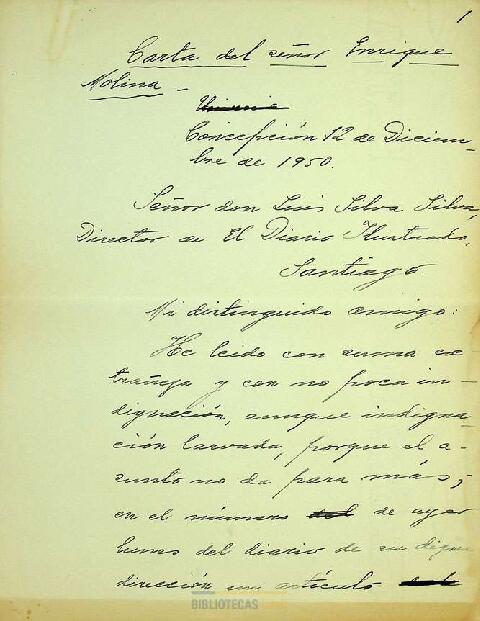 1
Carta del señor Enrique
Molina -
Concepción 12 de Diciem-
bre de 1950.
Señor don Luis Silva Silva,
Director de El Diario Ilustrado,
Santiago
Mi distinguido amigo:
He leido con suma ex-
trañeza y con no poca in-
dignación, aunque indigna-
ción larvada, porque el a-
sunto no da para más,
en el número del de ayer
lunes del diario de su digna
dirección un artículo del
BIBLIOTECAS